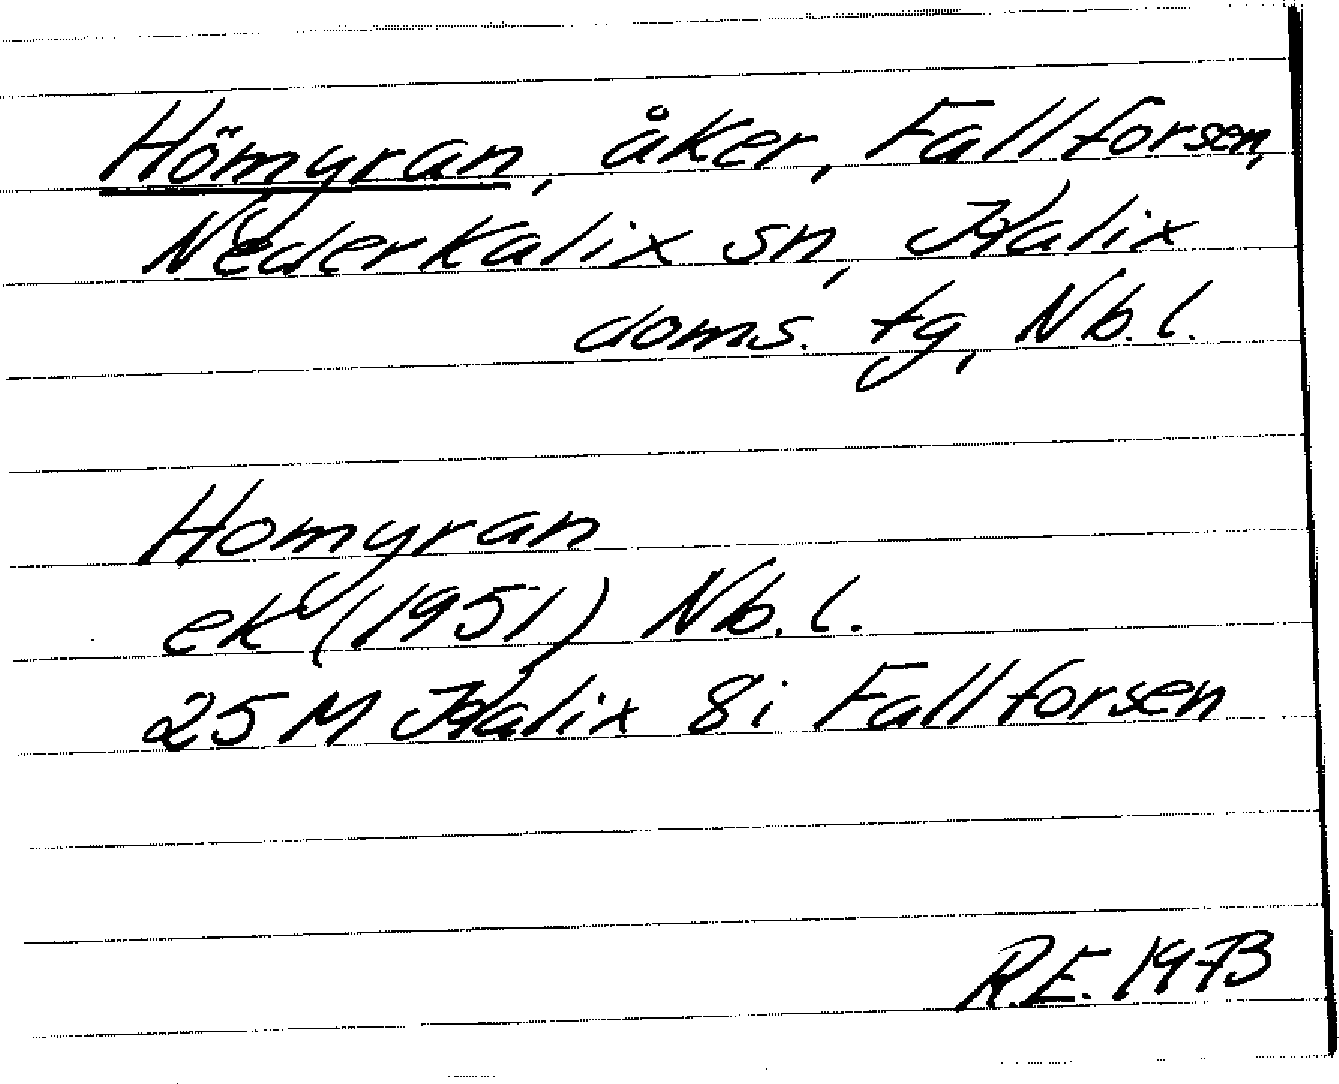 Hömyran, åker, Fallforsen,
Nederkalix sn, Kalix
doms. tg, Nb. l.
Homyran
ek (1951) Nb. l.
25 M Kalix 8i Fallforsen
R.E. 1973